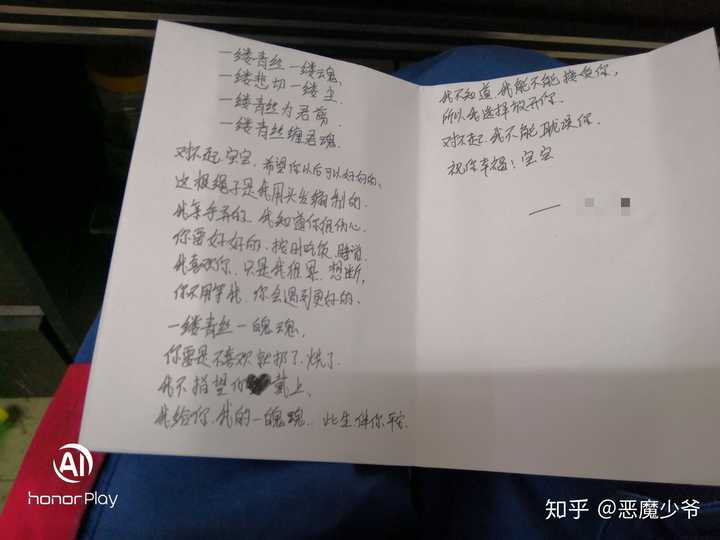 一缕青丝一缕魂,
一缕悲切一缕尘.
一缕青丝为君剪.
一缕青丝缠君魂.
对不起宝宝.希望你以后可以好好的、
这根绳子是我用头发编制的.
我亲手弄的.我知道你很伤心.
你要好好的.按时吃饭.睡觉.
我喜欢你.只是我很累.想断,
你不用等我.你会遇到更好的.
一缕青丝一魄魂,
你要是不喜欢就扔了.烧了.
我不指望你戴上、
我给你.我的一魄魂.此生伴你平安.
我不知道.我能不能接受你,
所以我选择放开你.
对不起.我不能耽误你.
祝你幸福:宝宝
AI
honor Play
知乎 @恶魔少爷